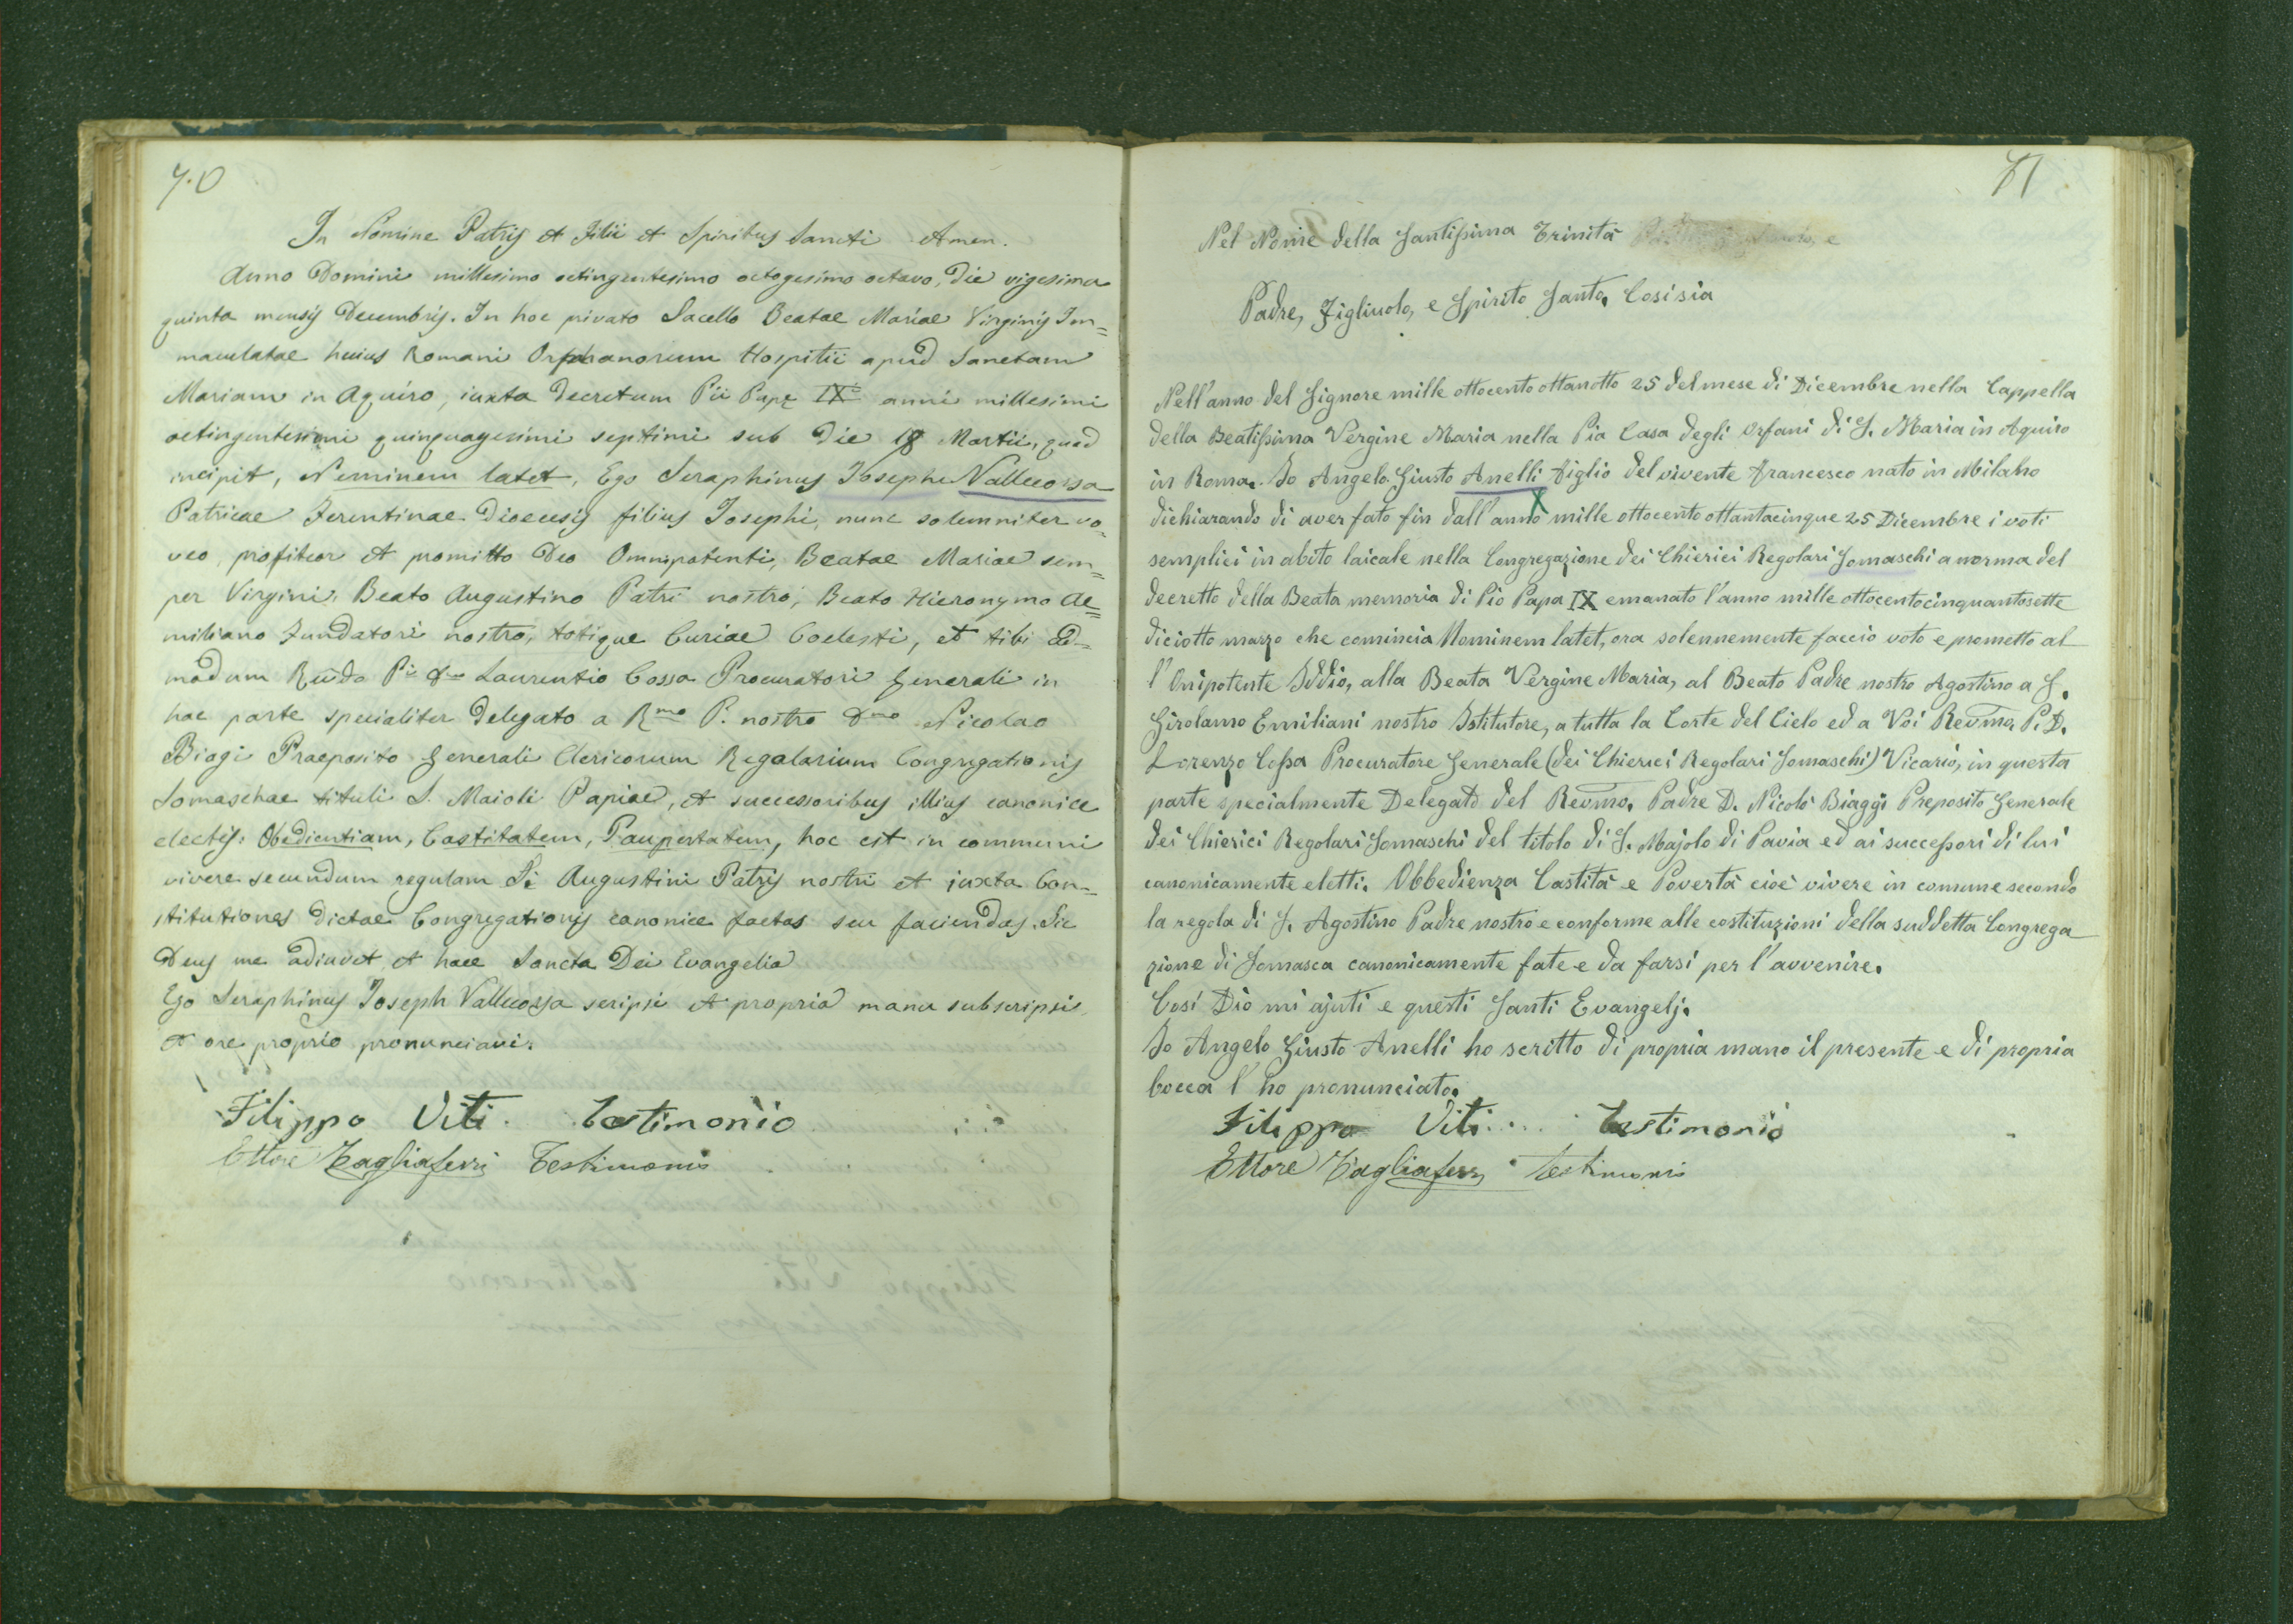 70
In Nomine Patris et Filii et Spiritus Sancti Amen.
Anno Domini millesimo octingentesimo octogesimo octavo, die vigesima
quinta mensis Decembris. In hoc privato Sacello Beatae Mariae Virginis Im=
maculatae huius Romani Orphanorum Hospitii apud Sanctam
Mariam in Aquiro, iuxta decretum Pii Papę IX anni millesimi
octingentesimi quinquagesimi septimi sub die 18 Martii, quod
incipit, Neminem latet, Ego Seraphinus Joseph Vallecorsa
Patricae Ferentinae Dioecesis filius Josephi, nunc solemniter vo=
veo, profiteor et promitto Deo Omnipotenti, Beatae Mariae sem=
per Virgini, Beato Augustino Patri nostro, Beato Hieronymo Ae=
miliano Fundatori nostro, totique Curiae Coelesti, et tibi ad=
modum Rndo Pri Dno Laurentio Cossa Procuratori Generali in
hac parte specialiter delegato a Rmo P. nostro Dno Nicolao
Biagi Praeposito Generali Clericorum Regularium Congregationis
Somaschae tituli S. Maioli Papiae, et successoribus illius canonice
electis: Obedientiam, Castitatem, Paupertatem, hoc est in communi
vivere secundum regulam Si Augustini Patris nostri et iuxta Con=
stitutiones dictae Congregationis canonice factas seu faciendas. Sic
Deus me adiuvet et haec Sancta Dei Evangelia
Ego Seraphinus Joseph Vallecorsa scripsi et propria manu subscripsi,
et ore proprio pronunciavi.
Filippo Viti. Testimonio
Ettore Tagliaferri Testimonio
71
Nel Nome della Santissima Trinità
Padre, Figliuolo, e Spirito Santo. Cosisia
Nell'anno del Signore mille ottocento ottanotto 25 del mese di Dicembre nella Cappella
della Beatissima Vergine Maria nella Pia Casa degli Orfani di S. Maria in Aquiro
in Roma. Io Angelo Giusto Anelli figlio del vivente Francesco nato in Milano
dichiarando di aver fato fin dall'anno mille ottocento ottantacinque 25 Dicembre i voti
semplici in abito laicale nella Congregazione dei Chierici Regolari Somaschi a norma del
decretto della Beata memoria di Pio Papa IX emanato l'anno mille ottocentocinquantosette
diciotto marzo che comincia Nominem latet, ora solennemente faccio voto e prometto al
l'Onipotente Iddio, alla Beata Vergine Maria, al Beato Padre nostro Agostino a S.
Girolamo Emiliani nostro Istitutore, a tutta la Corte del Cielo ed a Voi Revmo. P. D.
Lorenzo Cossa Procuratore Generale (dei Chierici Regolari Somaschi) Vicario, in questa
parte specialmente Delegato del Revmo. Padre D. Nicolò Biaggi Preposito Generale
dei Chierici Regolari Somaschi del titolo di S. Majolo di Pavia ed ai successori di lui
canonicamente eletti. Obbedienza Castità e Povertà cioè vivere in comune secondo
la regola di S. Agostino Padre nostro e conforme alle costituzioni della suddetta Congrega
zione di Somasca canonicamente fate e da farsi per l'avvenire.
Così Dio mi ajuti e questi Santi Evangelj.
Io Angelo Giusto Anelli ho scritto di propria mano il presente e di propria
bocca l'ho pronunciato.
Filippo Viti. Testimonio
Ettore Tagliaferri Testimonio